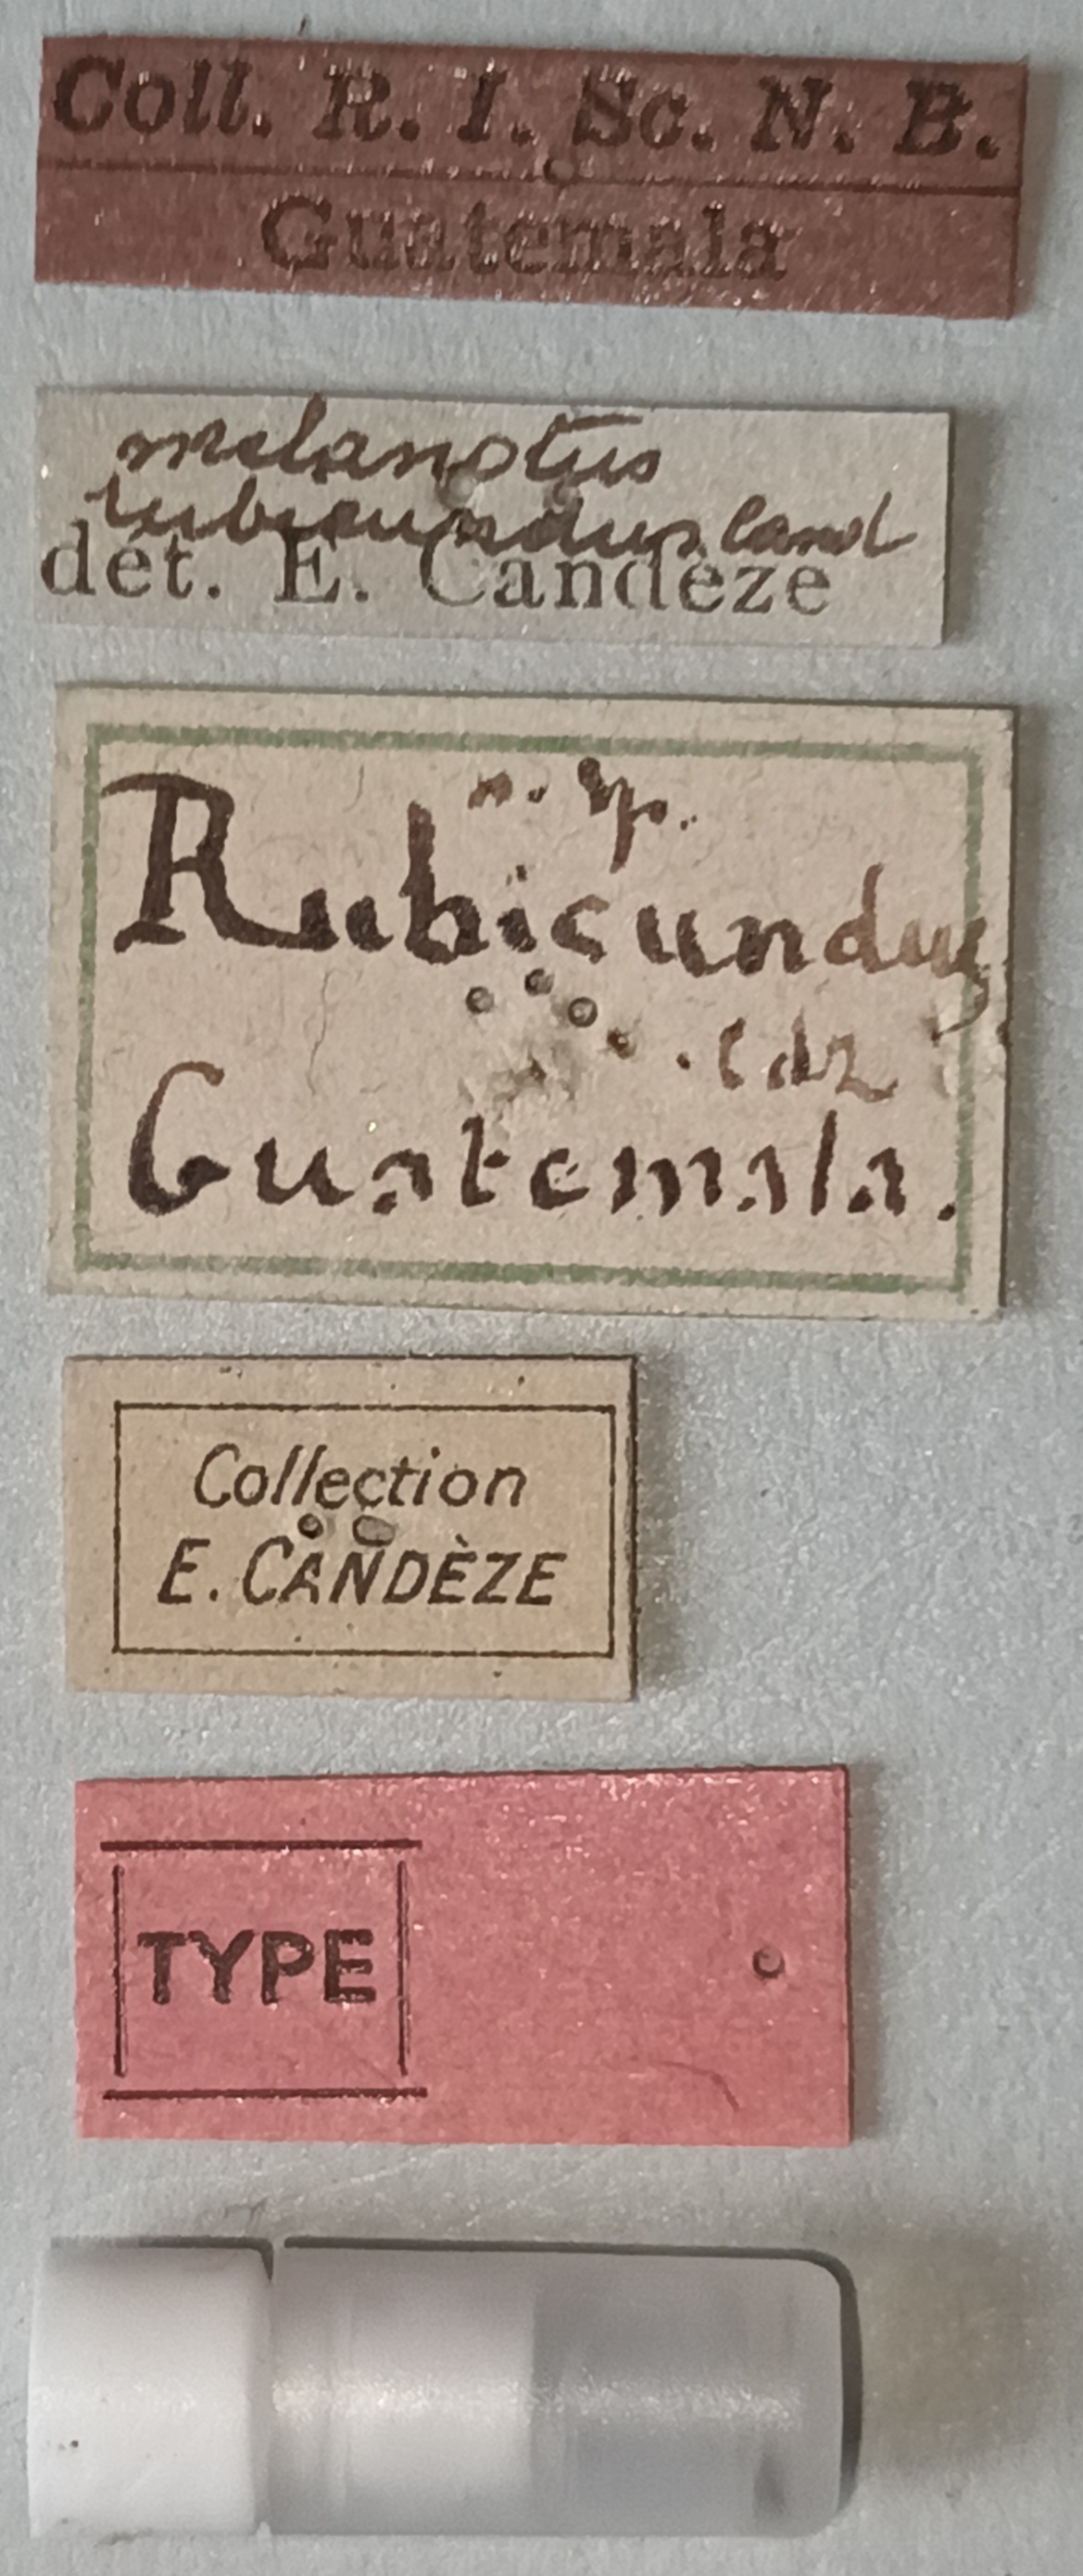 Coll. R. I. Sc. N. B.
Guatemala
melanotus
rubicundus Cand
det. E. Candèze
n. sp.
Rubicundus
. Cdz
Guatemala.
Collection
E. CANDÈZE
TYPE